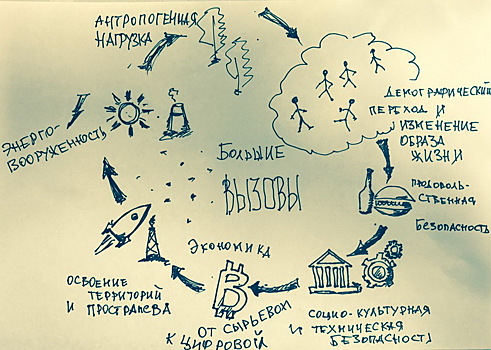 АНТРОПОГЕННАЯ
НАГРУЗКА
ДЕМОГРАФИЧЕСКИЙ
ПЕРЕХОД И
ИЗМЕНЕНИЕ
ОБРАЗА
ЖИЗНИ
ПРОДОВОЛЬ-
СТВЕННАЯ
БЕЗОПАСНОСТЬ
СОЦИО-КУЛЬТУРНАЯ
И ТЕХНИЧЕСКАЯ
БЕЗОПАСНОСТЬ
ЭКОНОМИКА
ОТ СЫРЬЕВОЙ
К ЦИФРОВОЙ
ОСВОЕНИЕ
ТЕРРИТОРИЙ
И ПРОСТРАНСТВА
ЭНЕРГО-
ВООРУЖЕННОСТЬ
БОЛЬШИЕ
ВЫЗОВЫ